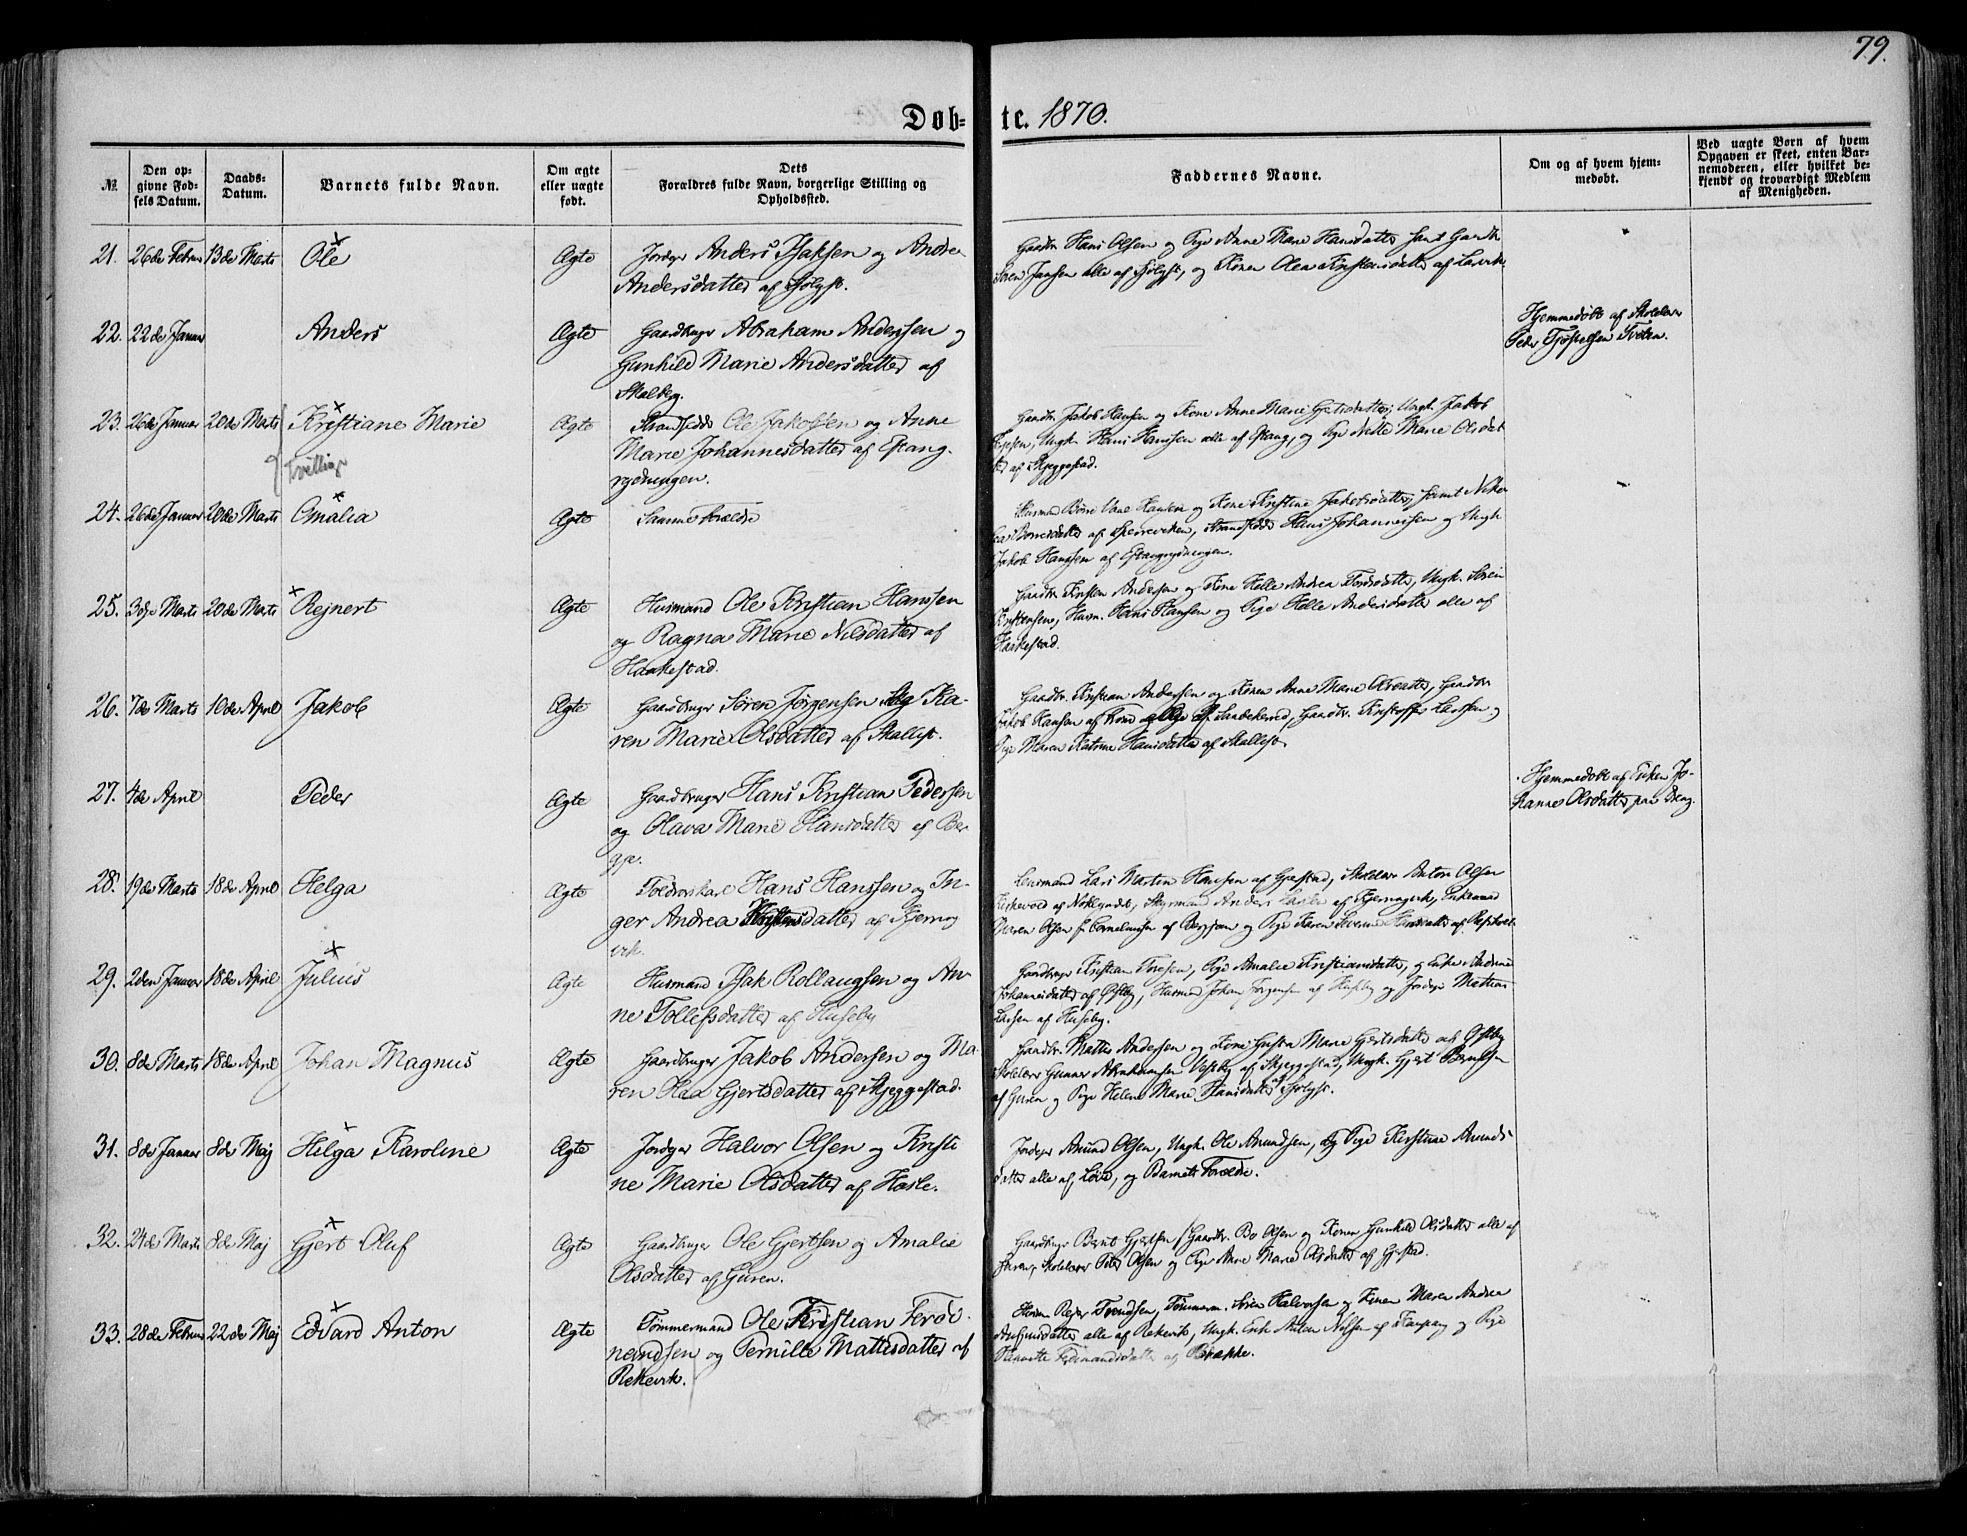 79.
Døb= te. 1870.
№
Den op-
givne Fød-
sels Datum.
Daabs-
Datum.
Barnets fulde Navn.
Om ægte
eller uægte
født.
Dets
Forældres fulde Navn, borgerlige Stilling og
Opholdssted.
Faddernes Navne.
Om og af hvem hjem-
medøbt.
Ved uægte Børn af hvem
Opgaven er skeet, enten Bar-
nemoderen, eller hvilket be-
kjendt og troværdigt Medlem
af Menigheden.
21. 26de Februar 13de Marts Ole Ægte Jordejer Anders Isaksen og Andrea
Andersdatter af
Gaardbr. Hans Olsen og Pige Anne Marie Hansdatter samt Gaardbr.
Søren Jansen alle af og Konen Olea Kristensdatter af
22. 22de Januar Anders Ægte Gaardbruger Abraham Anderssen og
Gunhild Marie Andersdatter af
Skalberg.
Hjemmedøbt af Skolelærer
Peder
23. 26de Januar 20de Marts Kristiane Marie Ægte Strandsidder Ole Jakobsen og Anne
Tvillinge
Marie Johannesdatter af Østang-
rydningen.
Gaardbr. Jakob Hansen og Kone Anne Marie Gjertsdatter, Ungk. Jakob
Ungk. Hans Hanssen alle af Østang, og Pige Nille Marie Olsdat-
ter af Skjeggestad.
24. 26de Januar 20de Marts Amalia Ægte Samme Forældre
Husmand Hansen og Kone Kristine Jakobsdatter, samt
af Strandsidder Hans Johannessen og Ungk.
Jakob Hanssen af Østangrydningen.
25. 3dje Marts 20de Marts Rejnert Ægte Husmand Ole Kristian Hanssen
og Ragna Marie Nilsdatter af
Haakestad.
Gaardbr. Kristen Andersen og Kone Helle Andrea Ungk. Søren
Kristensen, Husm. Hans Hansen og Pige Helle Andersdatter alle af
Haakestad.
26. 7de Marts 10de April Jakob Ægte Gaardbruger Søren Jørgensen og Ka-
ren Marie Olsdatter af Skallist.
Gaardbr. Kristian Andersen og Konen Anne Marie Olsdatter, Gaardbr.
Jakob Hansen af Gaardbr. Kristoffer Larsen og
Pige Maren Katrine Hansdatter af Skallist.
27. 4de April Peder Ægte Gaardbruger Hans Kristian Pedersen
og Olava Marie Hansdatter af Ber-
ge.
Hjemmedøbt af Enken Jo-
hanne Olsdatter paa
28. 19de Marts 18de April Helga Ægte Toldrorskarl Hans Hanssen og In-
ger Andrea Kristensdatter af
Lensmand Lars Martin Hansen af Skolelærer Anton Olsen
af Styrmand Anders af Enkemand
Søren Olsen af og Pige Karen Severine Hansdatter af
29. 2den Januar 18de April Julius Ægte Husmand Isak Rollaugsen og An-
ne Tollefsdatter af Huseby
Gaardbruger Kristian Pige Amalie Kristiansdatter, og Enke Andrine
Johannesdatter af Østby, Husmand Johan Jørgensen af Huseby og Jordejer Mathias
Larsen af Huseby.
30. 8de Marts 18de April Johan Magnus Ægte Gaardbruger Jakob Andersen og Ma-
ren Gjertsdatter af Skjeggestad.
Gaardbr. Mattis Andersen og Kone Marie Gjertsdatter af Østby
Skolelærer Gunnar Abrahamsen Vestby af Skjeggestad, Ungk. Gjert Berntsen
af Guren og Pige Helene Marie Hansdatter af
31. 8de Januar 8de Maj Helga Karoline Ægte Jordejer Halvor Olsen og Kristi-
ne Marie Olsdatter af Hasle.
Jordejer Amund Olsen, Ungk. Ole Amundsen, og Pige Kirstine Amunds-
datter alle af Løve, og Barnets Forældre.
32. 24de Marts 8de Maj Gjert Oluf Ægte Gaardbruger Ole Gjertsen og Amalie
Olsdatter af Guren.
Gaardbruger Bernt Gjertsen, Gaardbr. Bo Olsen og Konen Gunhild Olsdatter alle af
Guren, Skolelærer Peter Olsen og Pige Anne Marie Olsdatter af Gjestad.
33. 28de Februar 22de Maj Edvard Anton Ægte Tømmermand Ole Kristian Ferdi-
nandsen og Pernille Mattisdatter af
Rekevik.
Husm. Rejer Trondsen, Tømmerm. Søren Halvorsen og Konen Maren Andrea
alle af Rekevik, Ungk. Anton Nilsen af Kaupang og Pige
Ferdinandsdatter af Brække.